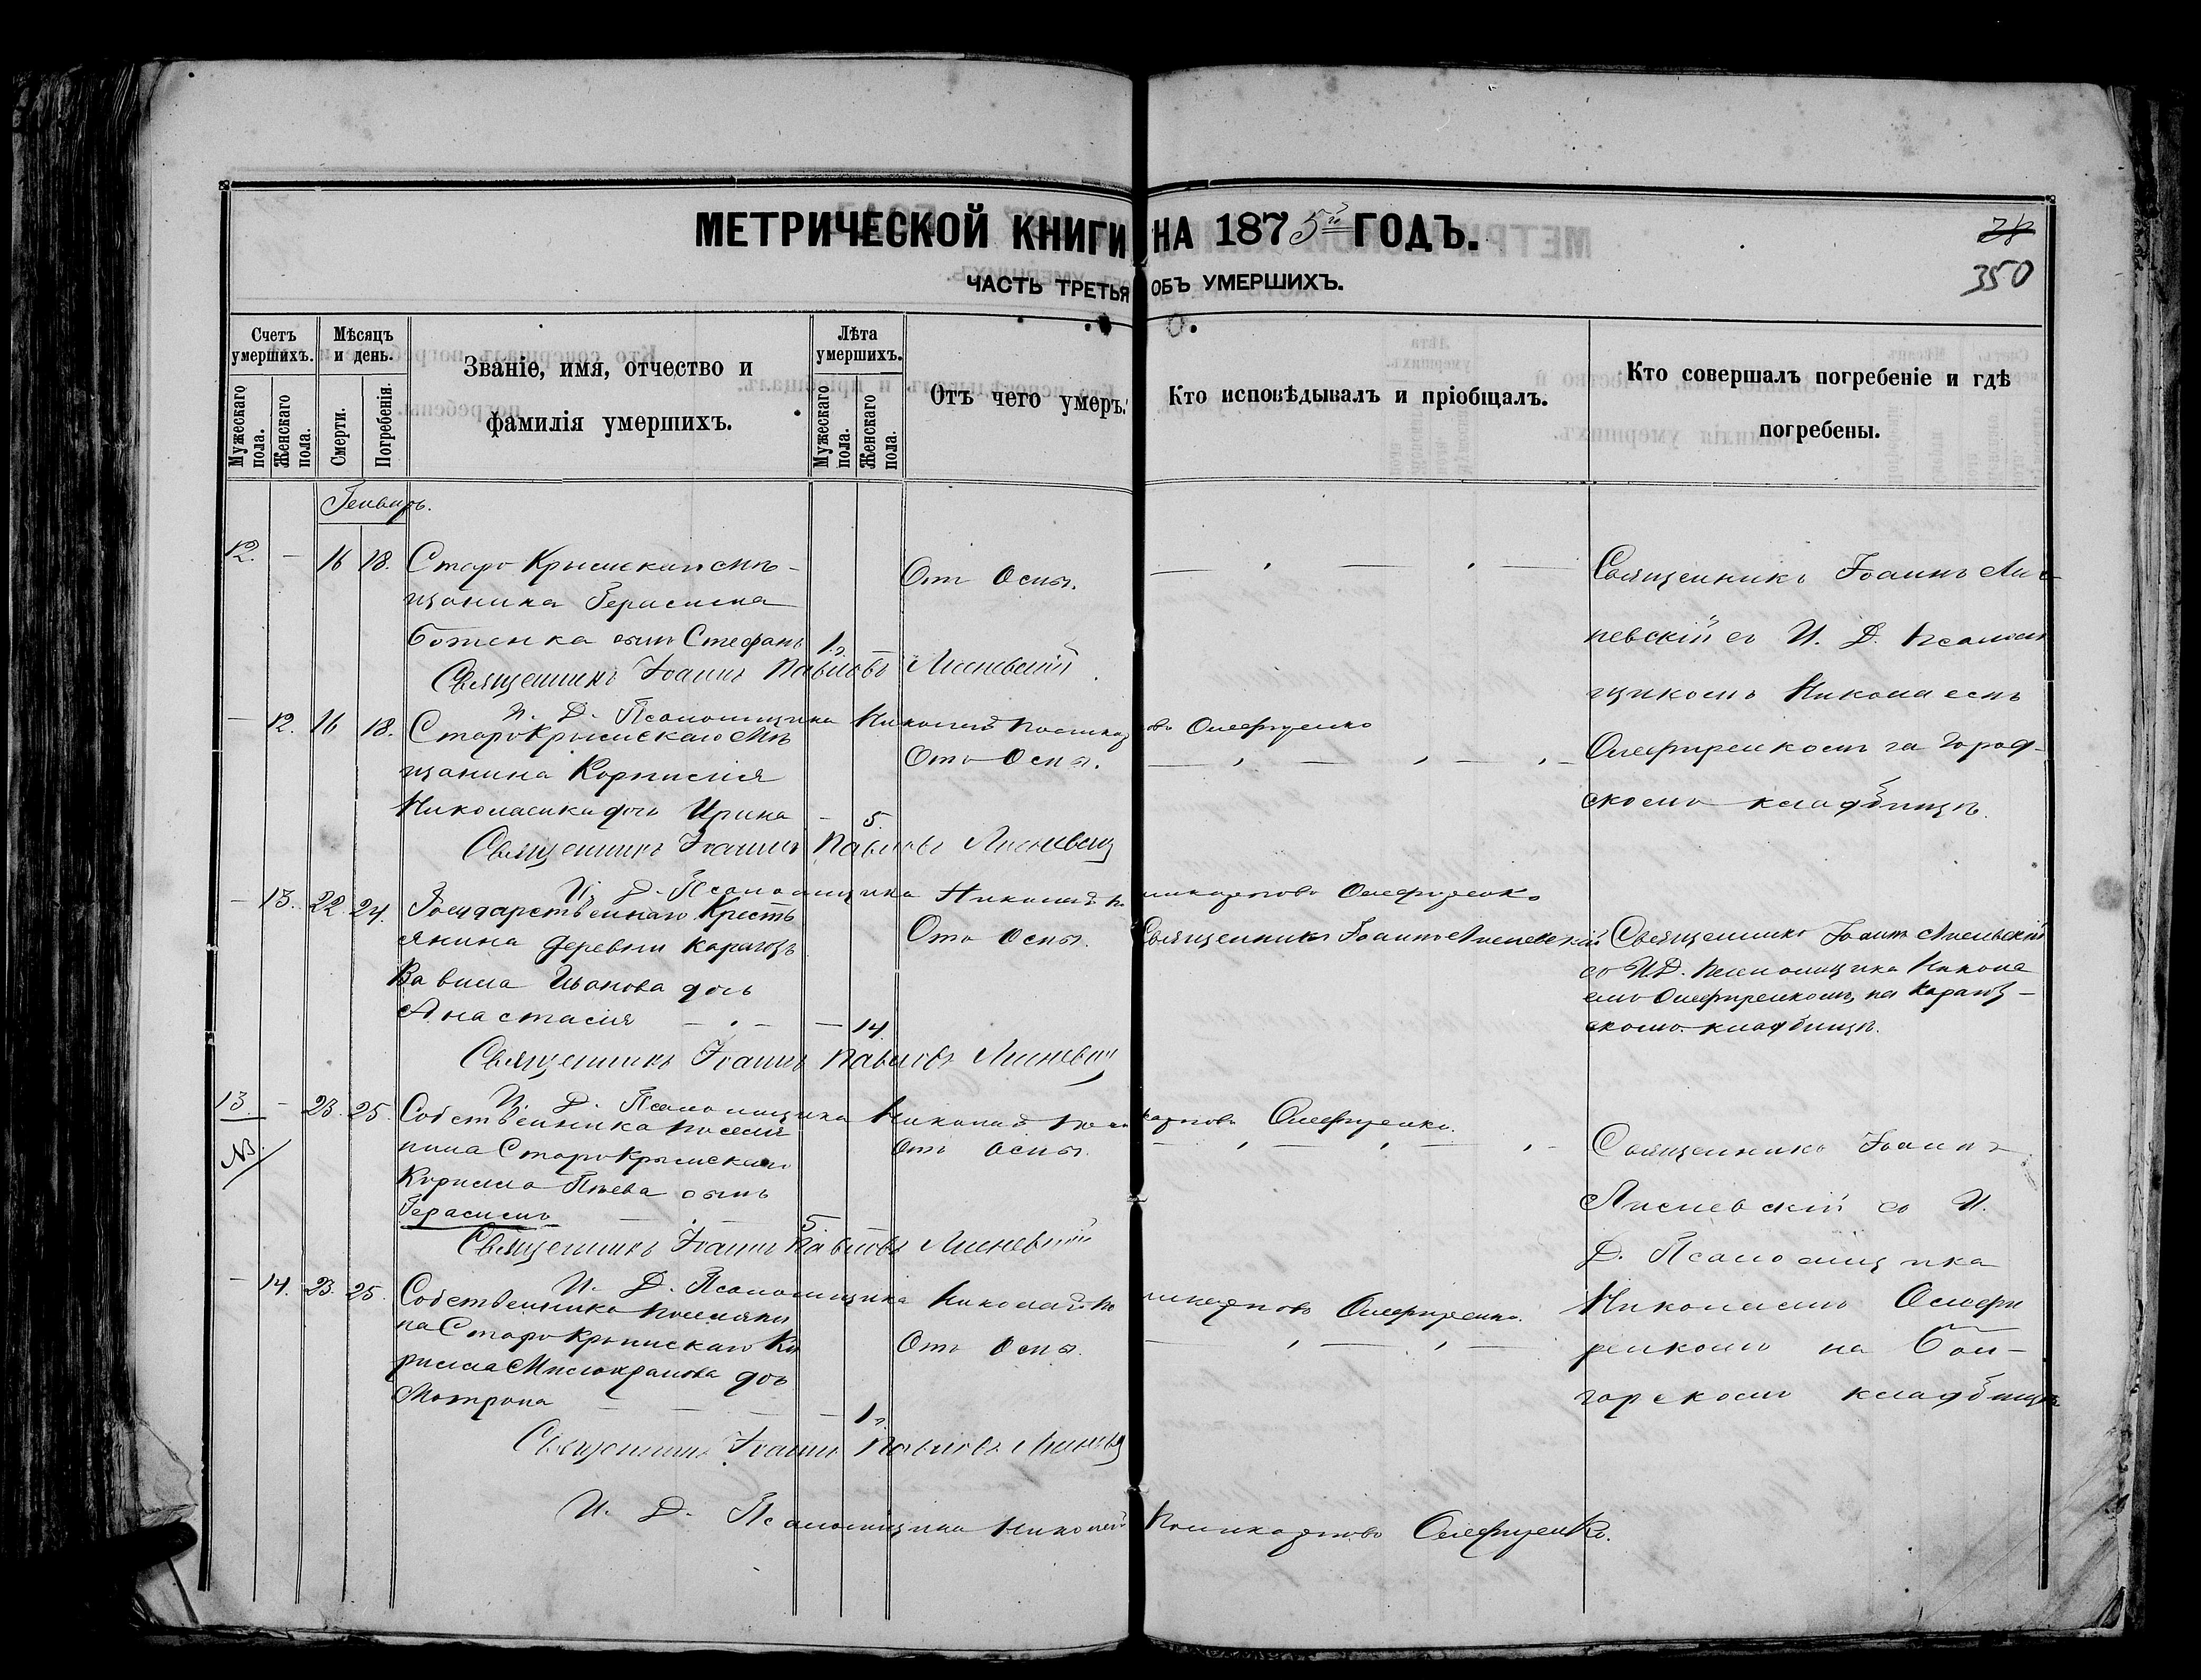 МЕТРИЧЕСКОЙ КНИГИ НА 1875й ГОДЪ.
350
ЧАСТЬ ТРЕТЬЯ ОБЪ УМЕРШИХЪ.
Счетъ умершихъ.
Мужескаго пола.
Женскаго пола.
Мѣсяцъ и день.
Смерти.
Погребенія.
Званіе, имя, отчество и
фамилія умершихъ.
Лѣта умершихъ.
Мужескаго пола.
Женскаго пола.
Отъ чего умеръ.
Кто исповѣдывалъ и пріобщалъ.
Кто совершалъ погребеніе и гдѣ
погребены.
Генварь.
12. — 16 18. Старо Крымскаго мѣ-
щанина Герасима
сынъ Стефанъ 1.
Отъ Оспы.
Священникъ Іоаннъ Лис-
невскій съ И. Д. Псалом
щикомъ Николаемъ
Олефиренкомъ на Город-
скомъ кладбищѣ.
Священникъ Іоаннъ Павловъ Лисневскій
И. Д. Псаломщика Николай Поликарповъ Олефиренко
— 12. 16 18. Старокрымскаго мѣ
щанина Корнилія
Николаенка дочь Ирина — 5.
Отъ Оспы.
Священникъ Іоаннъ Павловъ Лисневскій
И. Д. Псаломщика Николай Поликарповъ Олефиренко
— 13. 22. 24. Государственнаго Кресть
янина деревни Карагозъ
Вавила Иванова дочь
Анастасія — 14.
Отъ Оспы.
Священникъ Іоаннъ Лисневскій
Священникъ Іоаннъ Лисневскій
съ И.Д. Псаломщика Никола
емъ Олефиренкомъ, на Карагоз-
скомъ кладбищѣ.
Священникъ Іоаннъ Павловъ Лисневскій
И. Д. Псаломщика Николай Поликарповъ Олефиренко.
13. — 23. 25. Собственника поселя
NB.
нина Старокрымскаго
Кирилла сынъ
Герасимъ 5.
Отъ Оспы.
Священникъ Іоаннъ
Лисневскій съ И.
Д. Псаломщика
Николаемъ Олефи
ренкомъ на Бол-
горскомъ кладбищѣ.
Священникъ Іоаннъ Павловъ Лисневскій
И. Д. Псаломщика Николай Поликарповъ Олефиренко.
— 14. 23. 25. Собственника поселяни
на Старокрымскаго Ки
рилла дочь
Матрона — 1.
Отъ Оспы.
Священникъ Іоаннъ Павловъ Лисневскій
И. Д. Псаломщика Николай Поликарповъ Олефиренко.